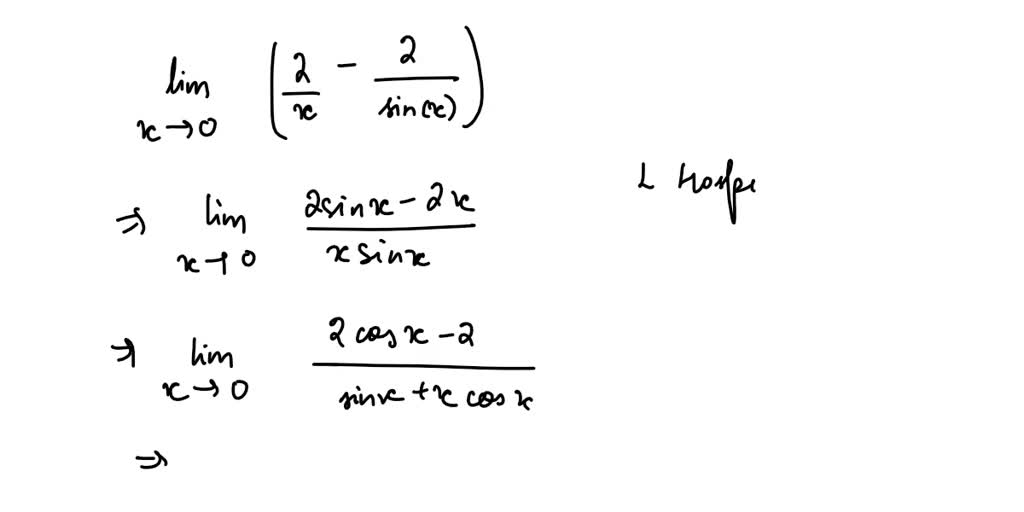 lim x→0 (2/x − 2/sin(x))
⇒ lim x→0 (2sinx − 2x)/(x sinx)
L
⇒ lim x→0 (2 cosx − 2)/(sinx + x cosx)
⇒